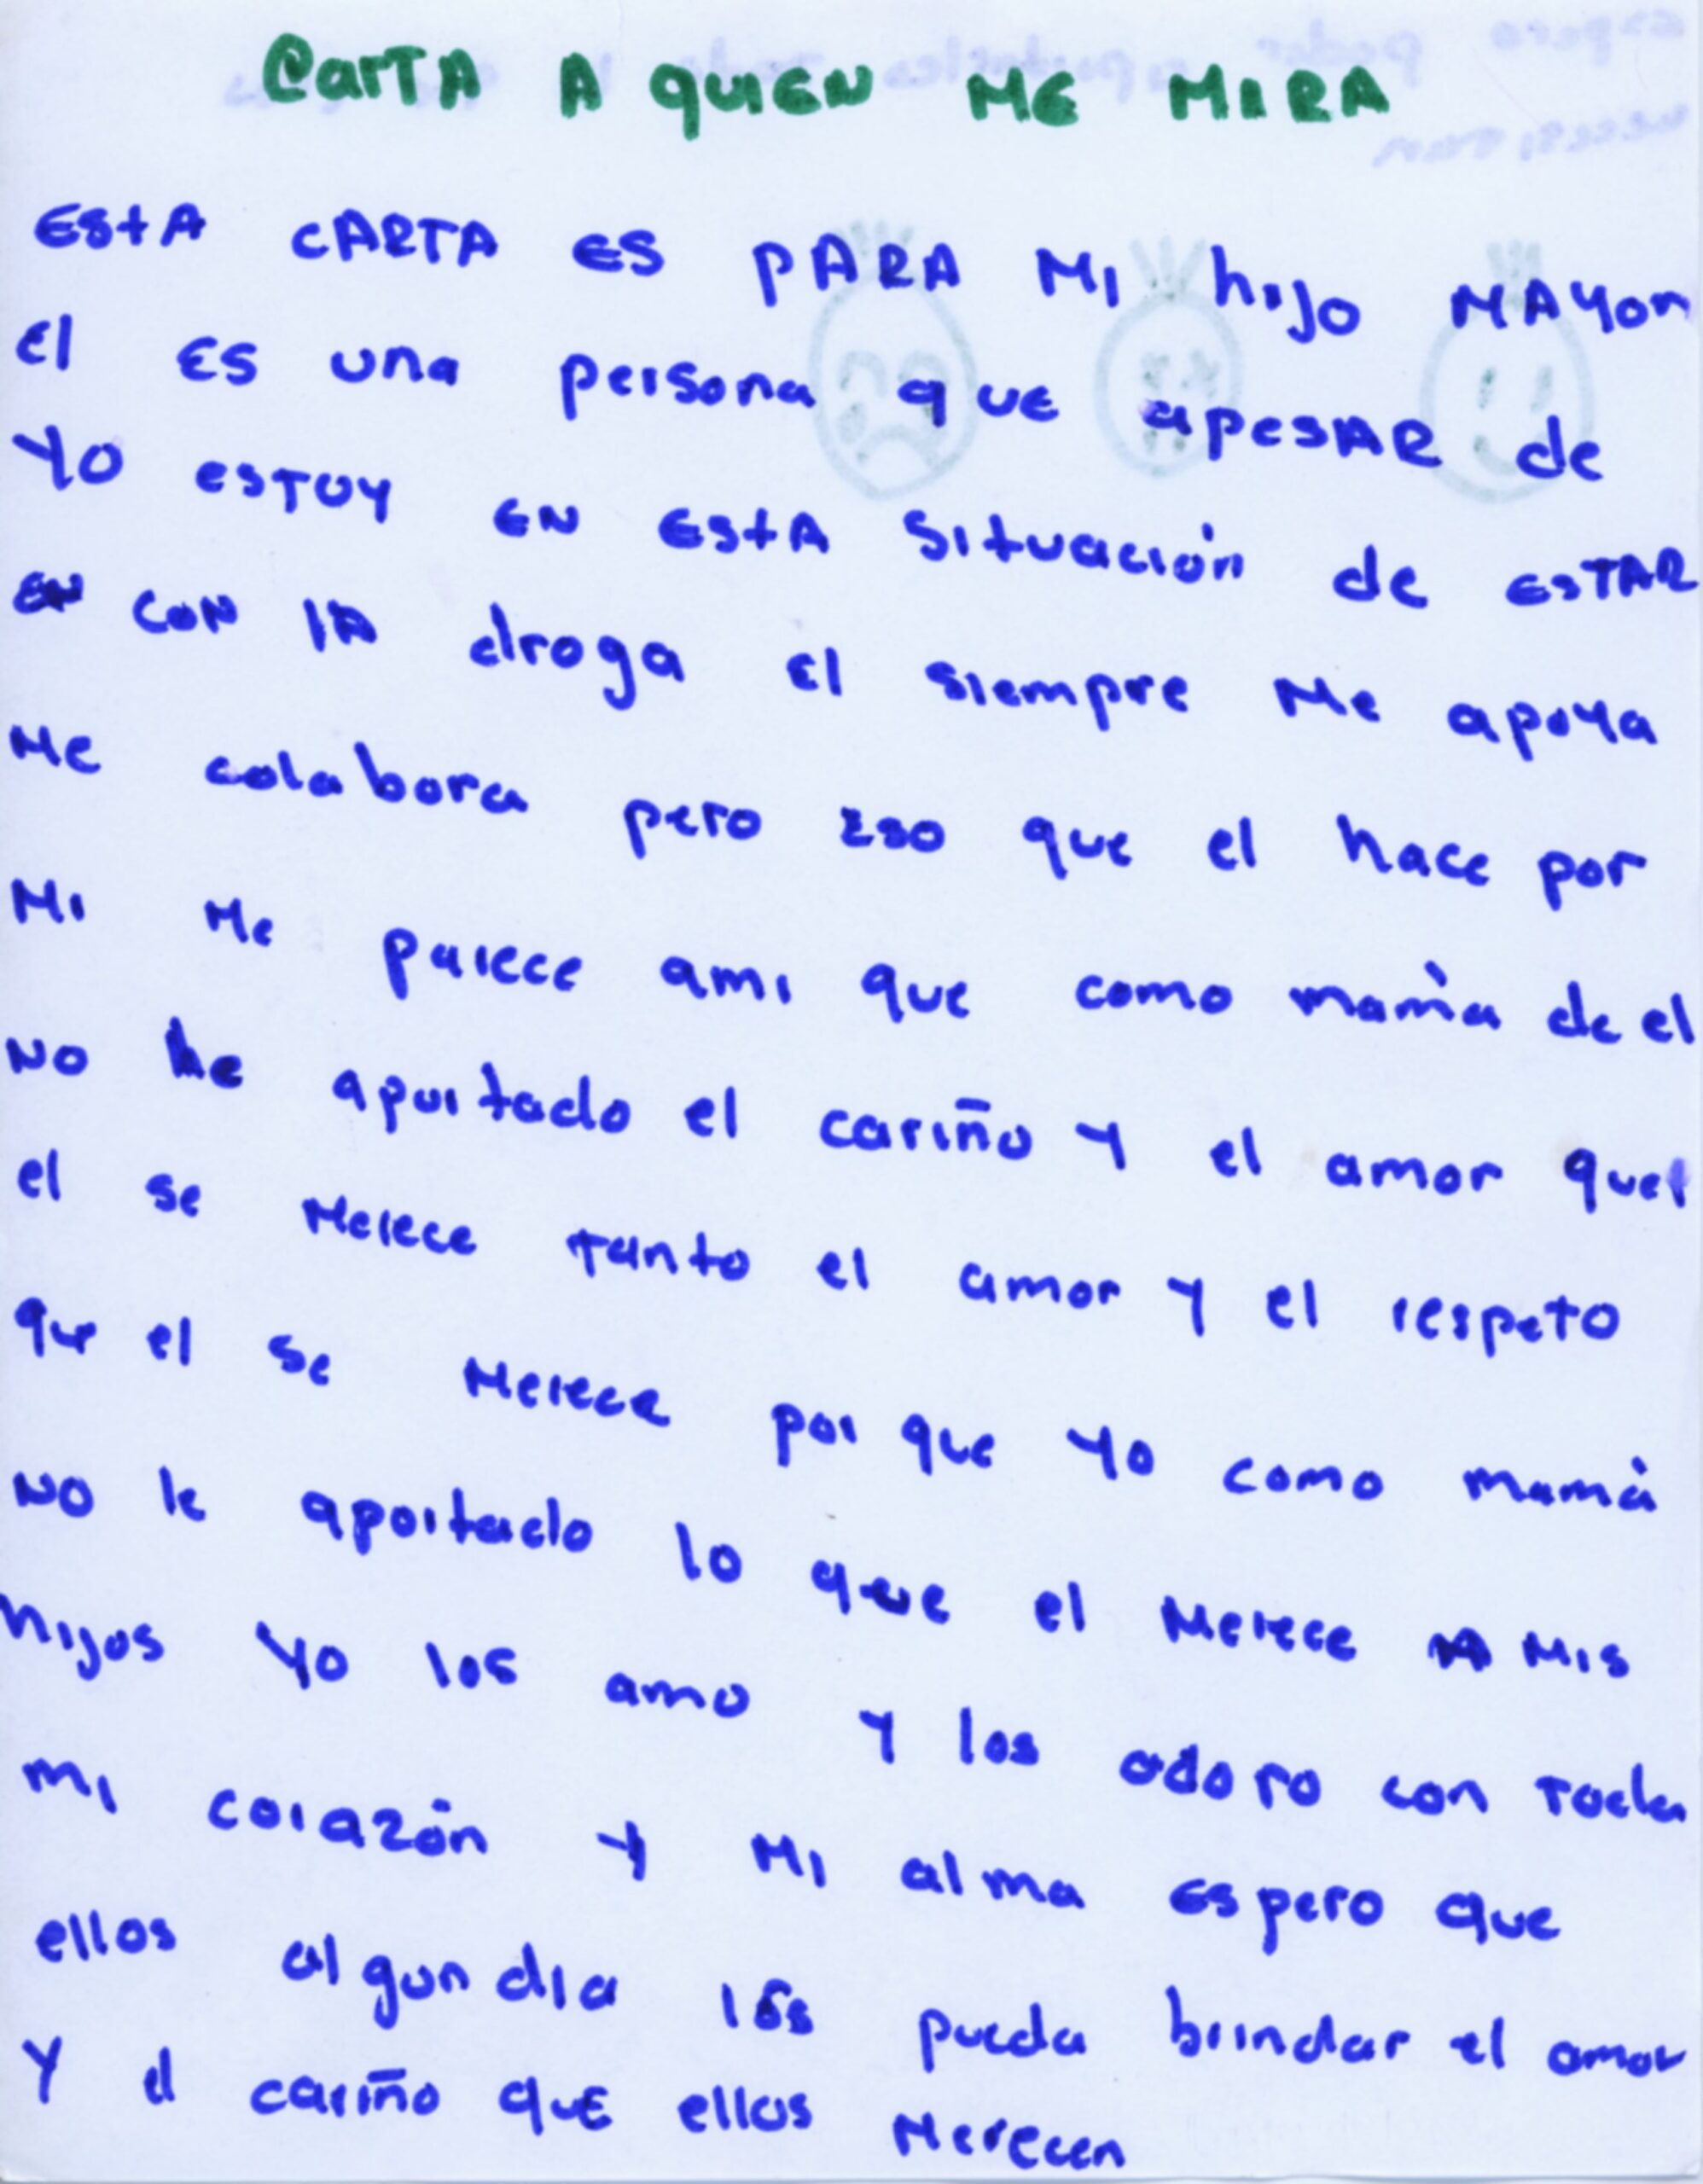 CarTA A quien ME MIRA
ESTA CARTA ES PARA MI hijo MAYor
el ES una persona que apesAR de
Yo ESTUY EN ESTA Situación de ESTAR
EN CON lA droga el siempre Me apoya
Me colabora pero eso que el hace por
Mi Me parece ami que como mamá de el
NO he aportado el cariño Y el amor que
el se Merece Tanto el amor Y el respeto
que el se Merece por que Yo como mamá
NO le aportado lo que el Merece A Mis
hijos Yo los amo Y los adoro con Toda
mi corazón Y Mi alma Espero que
ellos algun dia los pueda brindar el amor
Y el cariño que ellos Merecen